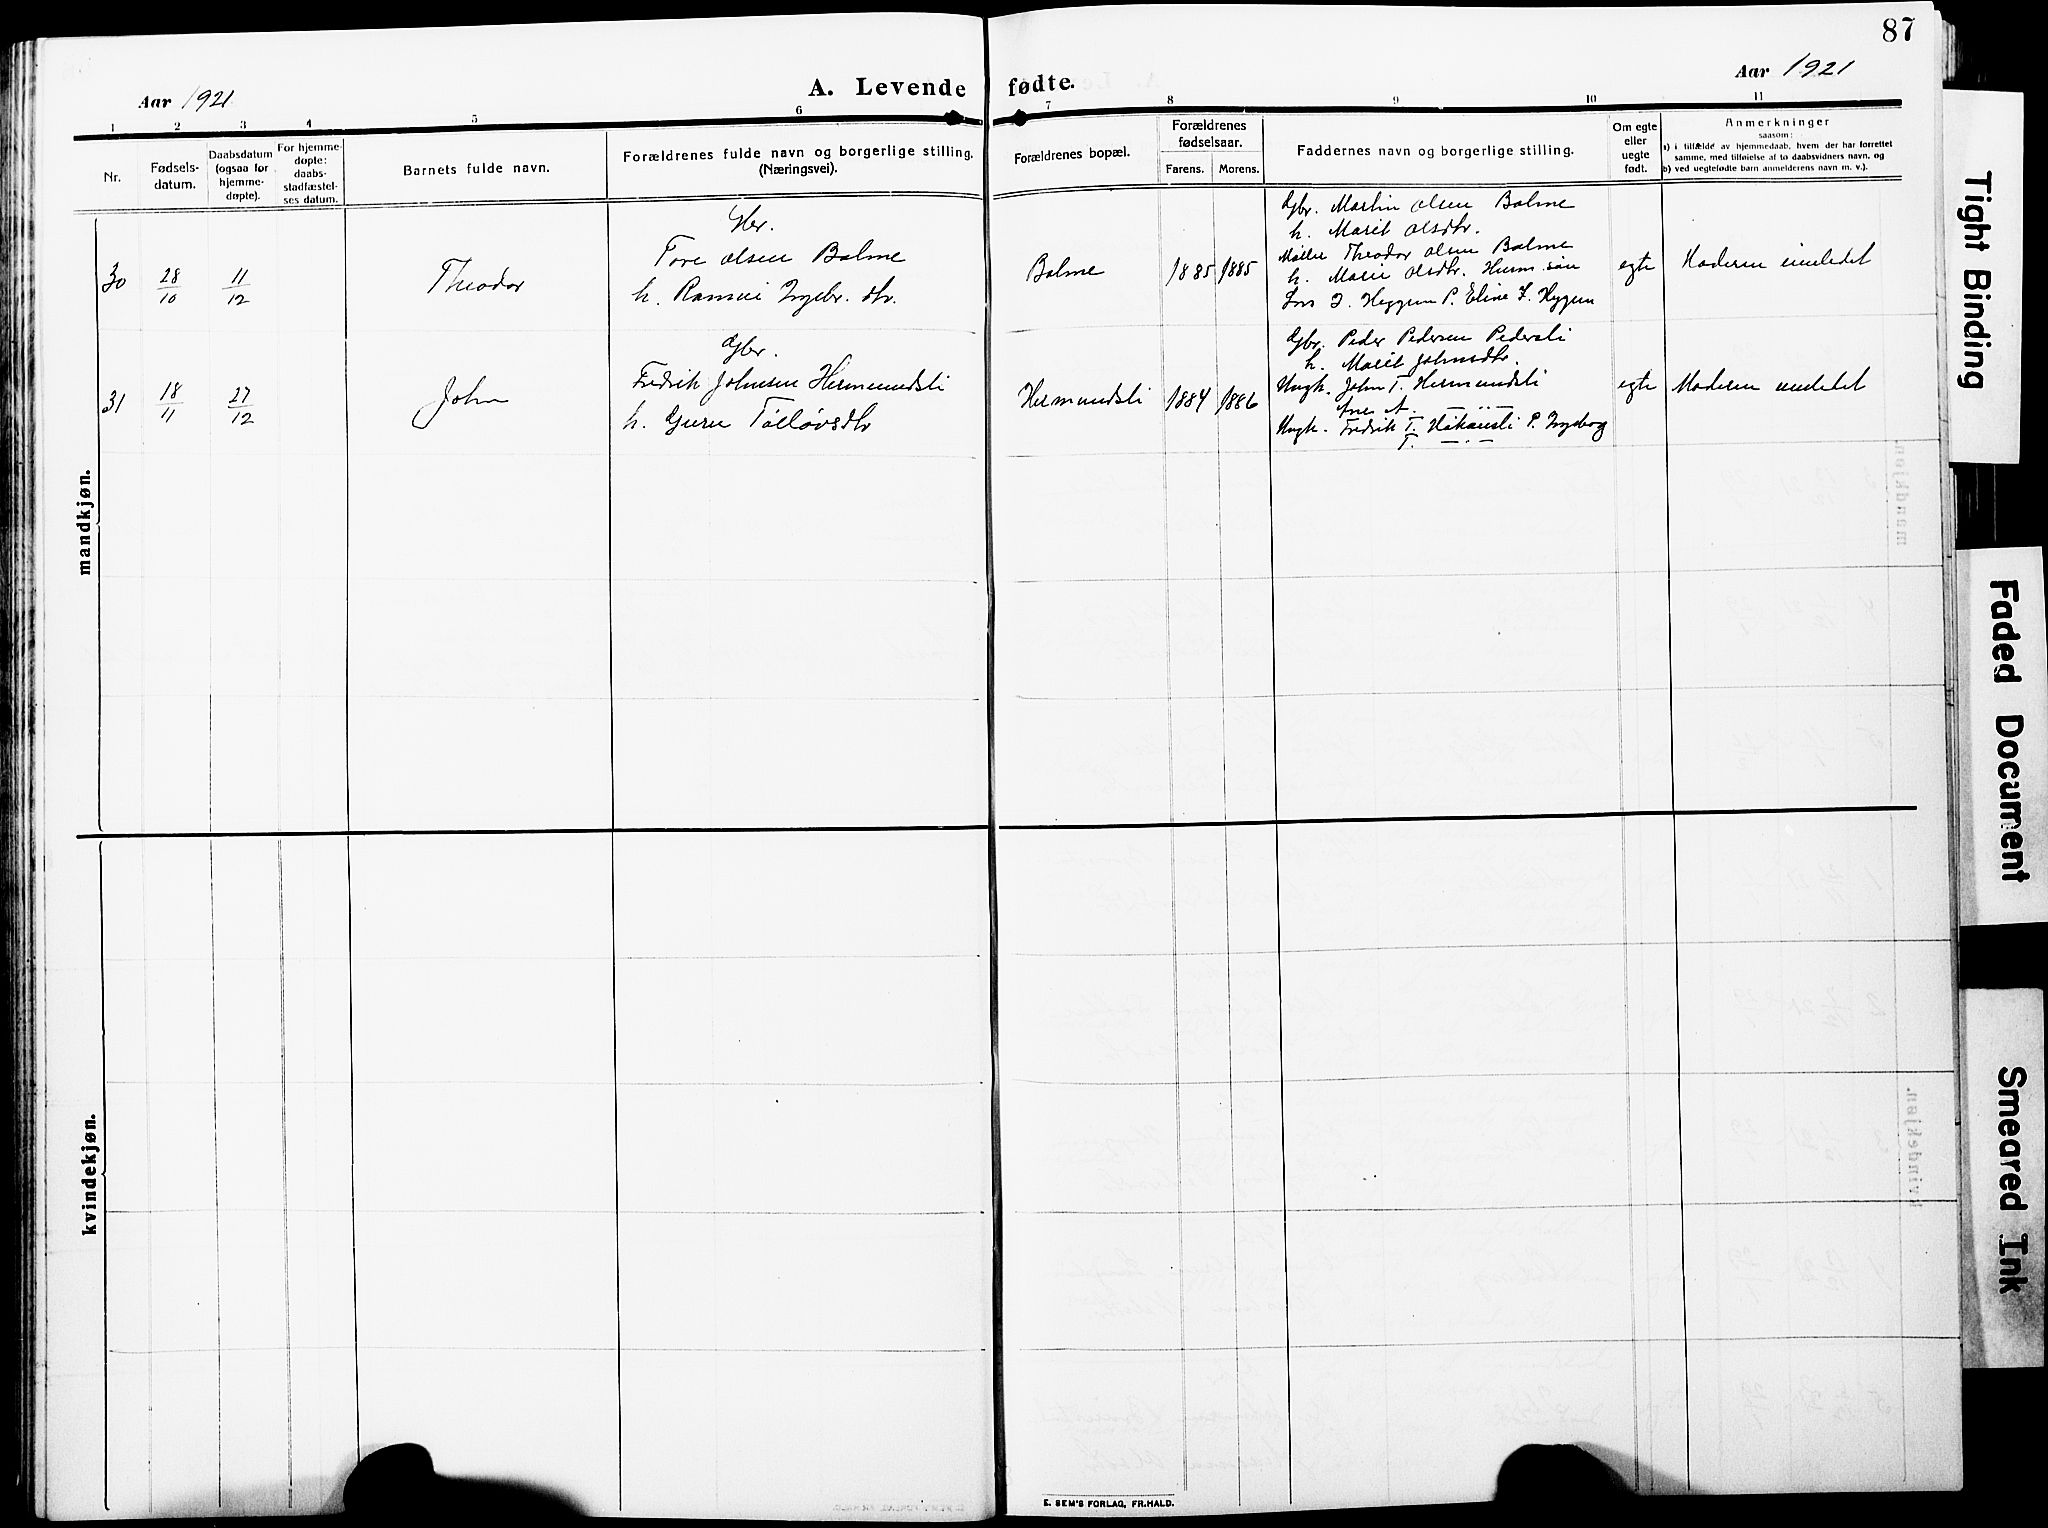 87
Aar 1921
A. Levende fødte.
Aar 1921
1 2 3 4 5 6 7 8 9 10 11
Nr.
Fødsels-
datum.
Daabsdatum
(ogsaa for
hjemme-
døpte).
For hjemme-
døpte:
daabs-
stadfæstel-
ses datum.
Barnets fulde navn.
Forældrenes fulde navn og borgerlige stilling.
(Næringsvei).
Forældrenes bopæl.
Forældrenes
fødselsaar.
Farens. Morens.
Faddernes navn og borgerlige stilling.
Om egte
eller
uegte
født.
Anmerkninger
saasom:
a) i tilfælde av hjemmedaab, hvem der har forrettet
samme, med tilføielse af to daabsvidners navn, og
b) ved uegtefødte barn anmelderens navn m. v.).
mandkjøn.
30
28/10
11/12
Theodor
Gbr.
Tore Olsen Bolme
h. Ingebr. dtr.
Bolme
1885 1885
Gbr. Martin Olsen Bolme
h. Marit Olsdtr.
Theodor Olsen Bolme
h. Marie Olsdtr.
Lars J. Heggem P. Eline
egte
Moderen innledet
31
18/11
27/12
John
Gbr.
Fredrik Johnsen Hermundsli
h. Guru Tølløvsdtr
Hermundsli
1884 1886
Gbr. Peder Pedersen Pedersli
h. Marit Johnsdtr.
Ungk. John T. Hermundsli
Ane A. —"—
Ungk. Fredrik T. Håkånsli P. Ingeborg
T. —"—
egte
Moderen innledet
kvindekjøn.
E. SEM'S FORLAG, FR.HALD.
Tight Binding
Faded Document
Smeared Ink